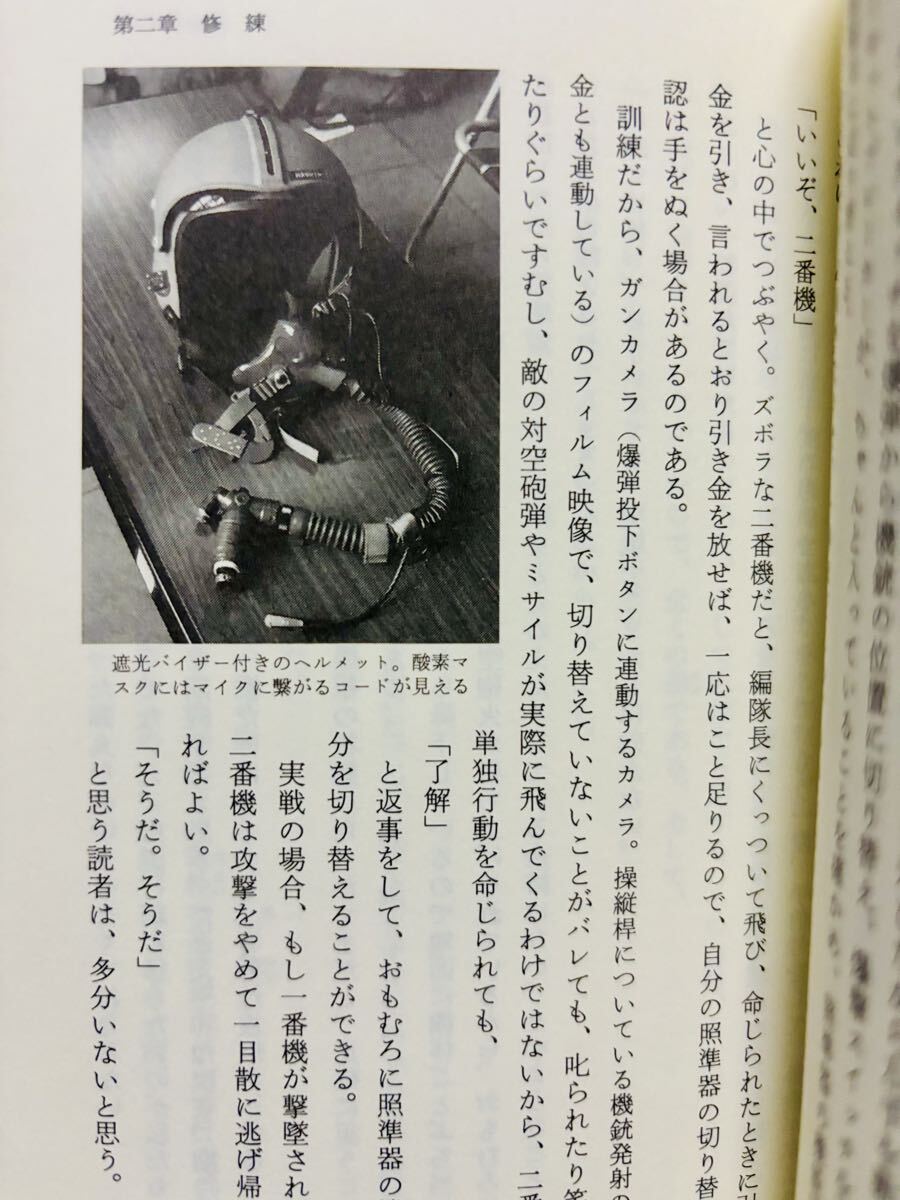 第二章 修 練
「いいぞ、二番機」
と心の中でつぶやく。ズボラな二番機だと、編隊長にくっついて飛び、命じられたときに引
金を引き、言われるとおり引き金を放せば、一応はこと足りるので、自分の照準器の切り替
認は手をぬく場合があるのである。
訓練だから、ガンカメラ(爆弾投下ボタンに連動するカメラ。操縦桿についている機銃発射の
金とも連動している)のフィルム映像で、切り替えていないことがバレても、叱られたり笞
たりぐらいですむし、敵の対空砲弾やミサイルが実際に飛んでくるわけではないから、二番
単独行動を命じられても、
「了解」
と返事をして、おもむろに照準器の
分を切り替えることができる。
実戦の場合、もし一番機が撃墜され
二番機は攻撃をやめて一目散に逃げ帰
ればよい。
「そうだ。そうだ」
と思う読者は、多分いないと思う。
遮光バイザー付きのヘルメット。酸素マ
スクにはマイクに繋がるコードが見える